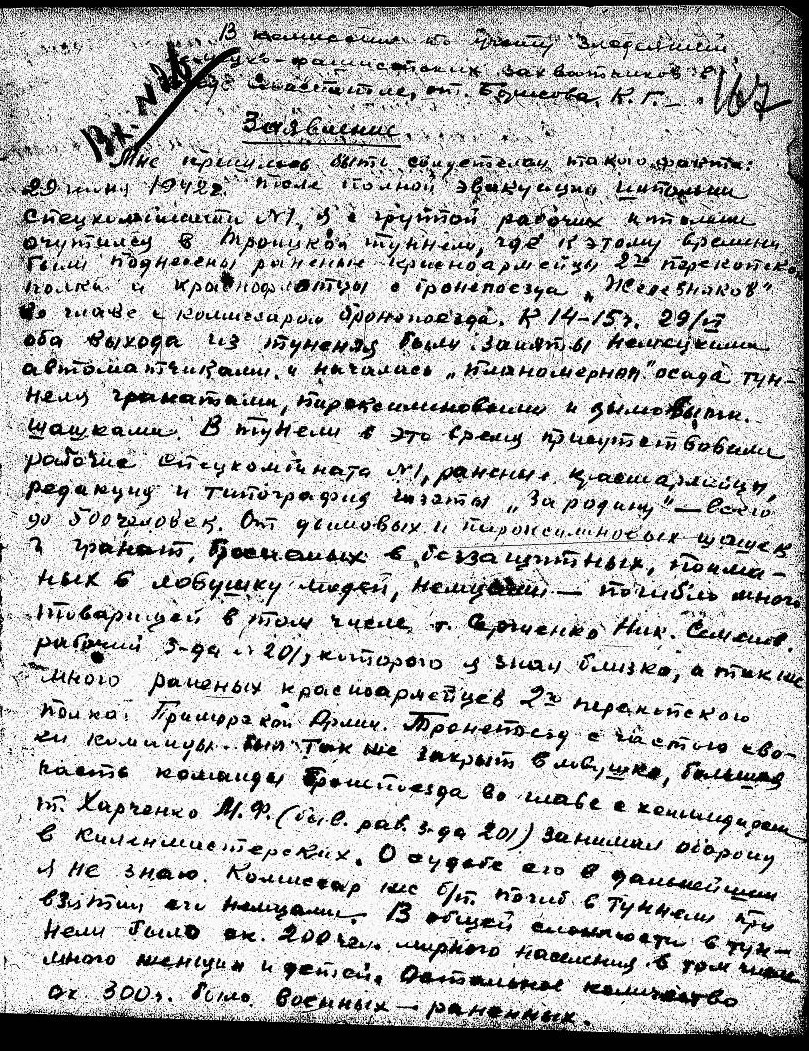 В комиссию по учету злодеяний
фашистских захватчиков в
Севастополе, от Борисова К. Г.
Вх. № 167
Заявление.
Мне пришлось быть свидетелем такого факта:
29 июня 1942г. после полной эвакуации
Спецкомбината №1, я с группой рабочих
очутился в Троицком туннели, где к этому времени
были поднесены раненые красноармейцы 2го перекопско
полка и краснофлотцы с бронепоезда „Железняков"
во главе с комиссаром бронепоезда. К 14-15ч. 29/VI
оба выхода из туннеля были заняты немецкими
автоматчиками и началась „планомерная" осада тун-
неля гранатами, пироксилиновыми и дымовыми
шашками. В туннели в это время присутствовали
рабочие спецкомбината №1, раненые красноармейцы,
редакция и типография газеты „За родину" — всего
до 500 человек. От дымовых и пироксилиновых шашек
и гранат, бросаемых в беззащитных, пойман-
ных в ловушку людей, немцами — погибло много
товарищей в том числе т. Сергиенко Ник. Семенов.
рабочий з-да № 201, которого я знал близко, а также
много раненых красноармейцев 2го перекопского
полка Приморской Армии. Бронепоезд с частью сво-
ей команды был так же закрыт в ловушке, большая
часть команды бронепоезда во главе с командиром
т. Харченко М.Ф. (быв. раб. з-да 201) занимал оборону
в Киленмастерских. О судьбе его в дальнейшем
я не знаю. Комиссар же б/п погиб в туннели при
взятии его немцами. В общей сложности в тун-
нели было ок. 200 чел. мирного населения в том числе
много женщин и детей. Остальное количество
ок. 300ч. было военных — раненных.